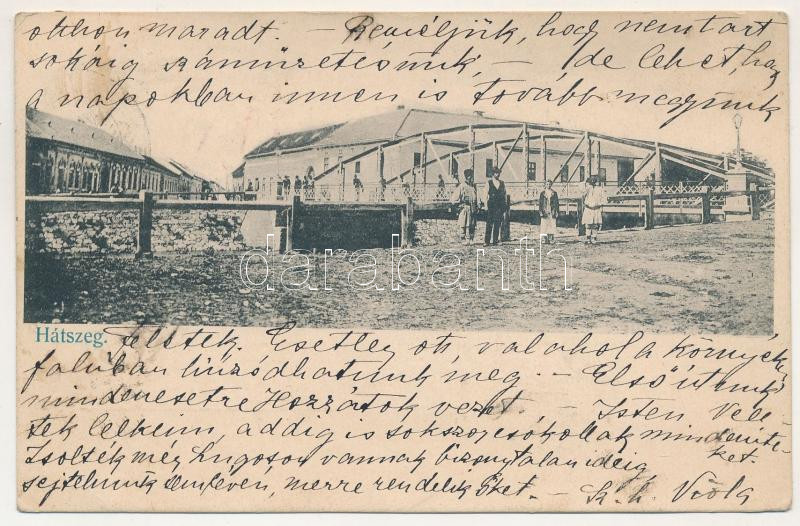 otthon maradt. – Reméljük, hogy nem tart
sokáig száműzetésünk, – de lehet, hogy
a napokban innen is tovább megyünk
darabanth
Hátszeg.
Esetleg ott valahol a környék
faluban húzódhatunk meg. – Első útunk
mindenesetre Hozzátok vezet. – Isten Vele-
tek lelkeim, addig is sokszor csókollak mindnyite-
ket.
Zsolték még Lugoson vannak bizonytalan ideig
sejtelmünk nem lévén, merre rendelik őket. – Sz. h. Viola